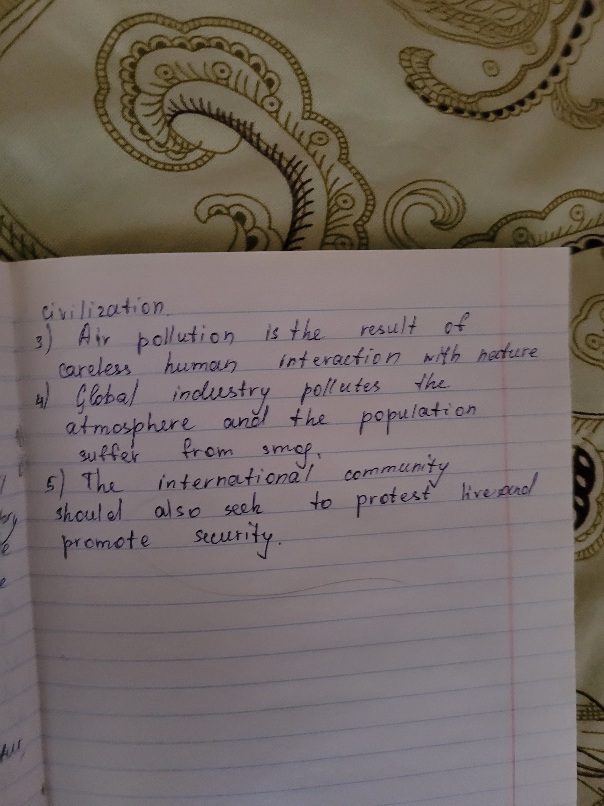 civilization.
3) Air pollution is the result of
careless human interaction with nature
4) Global industry pollutes the
atmosphere and the population
suffer from smog.
5) The international community
should also seek to protest lives and
promote security.